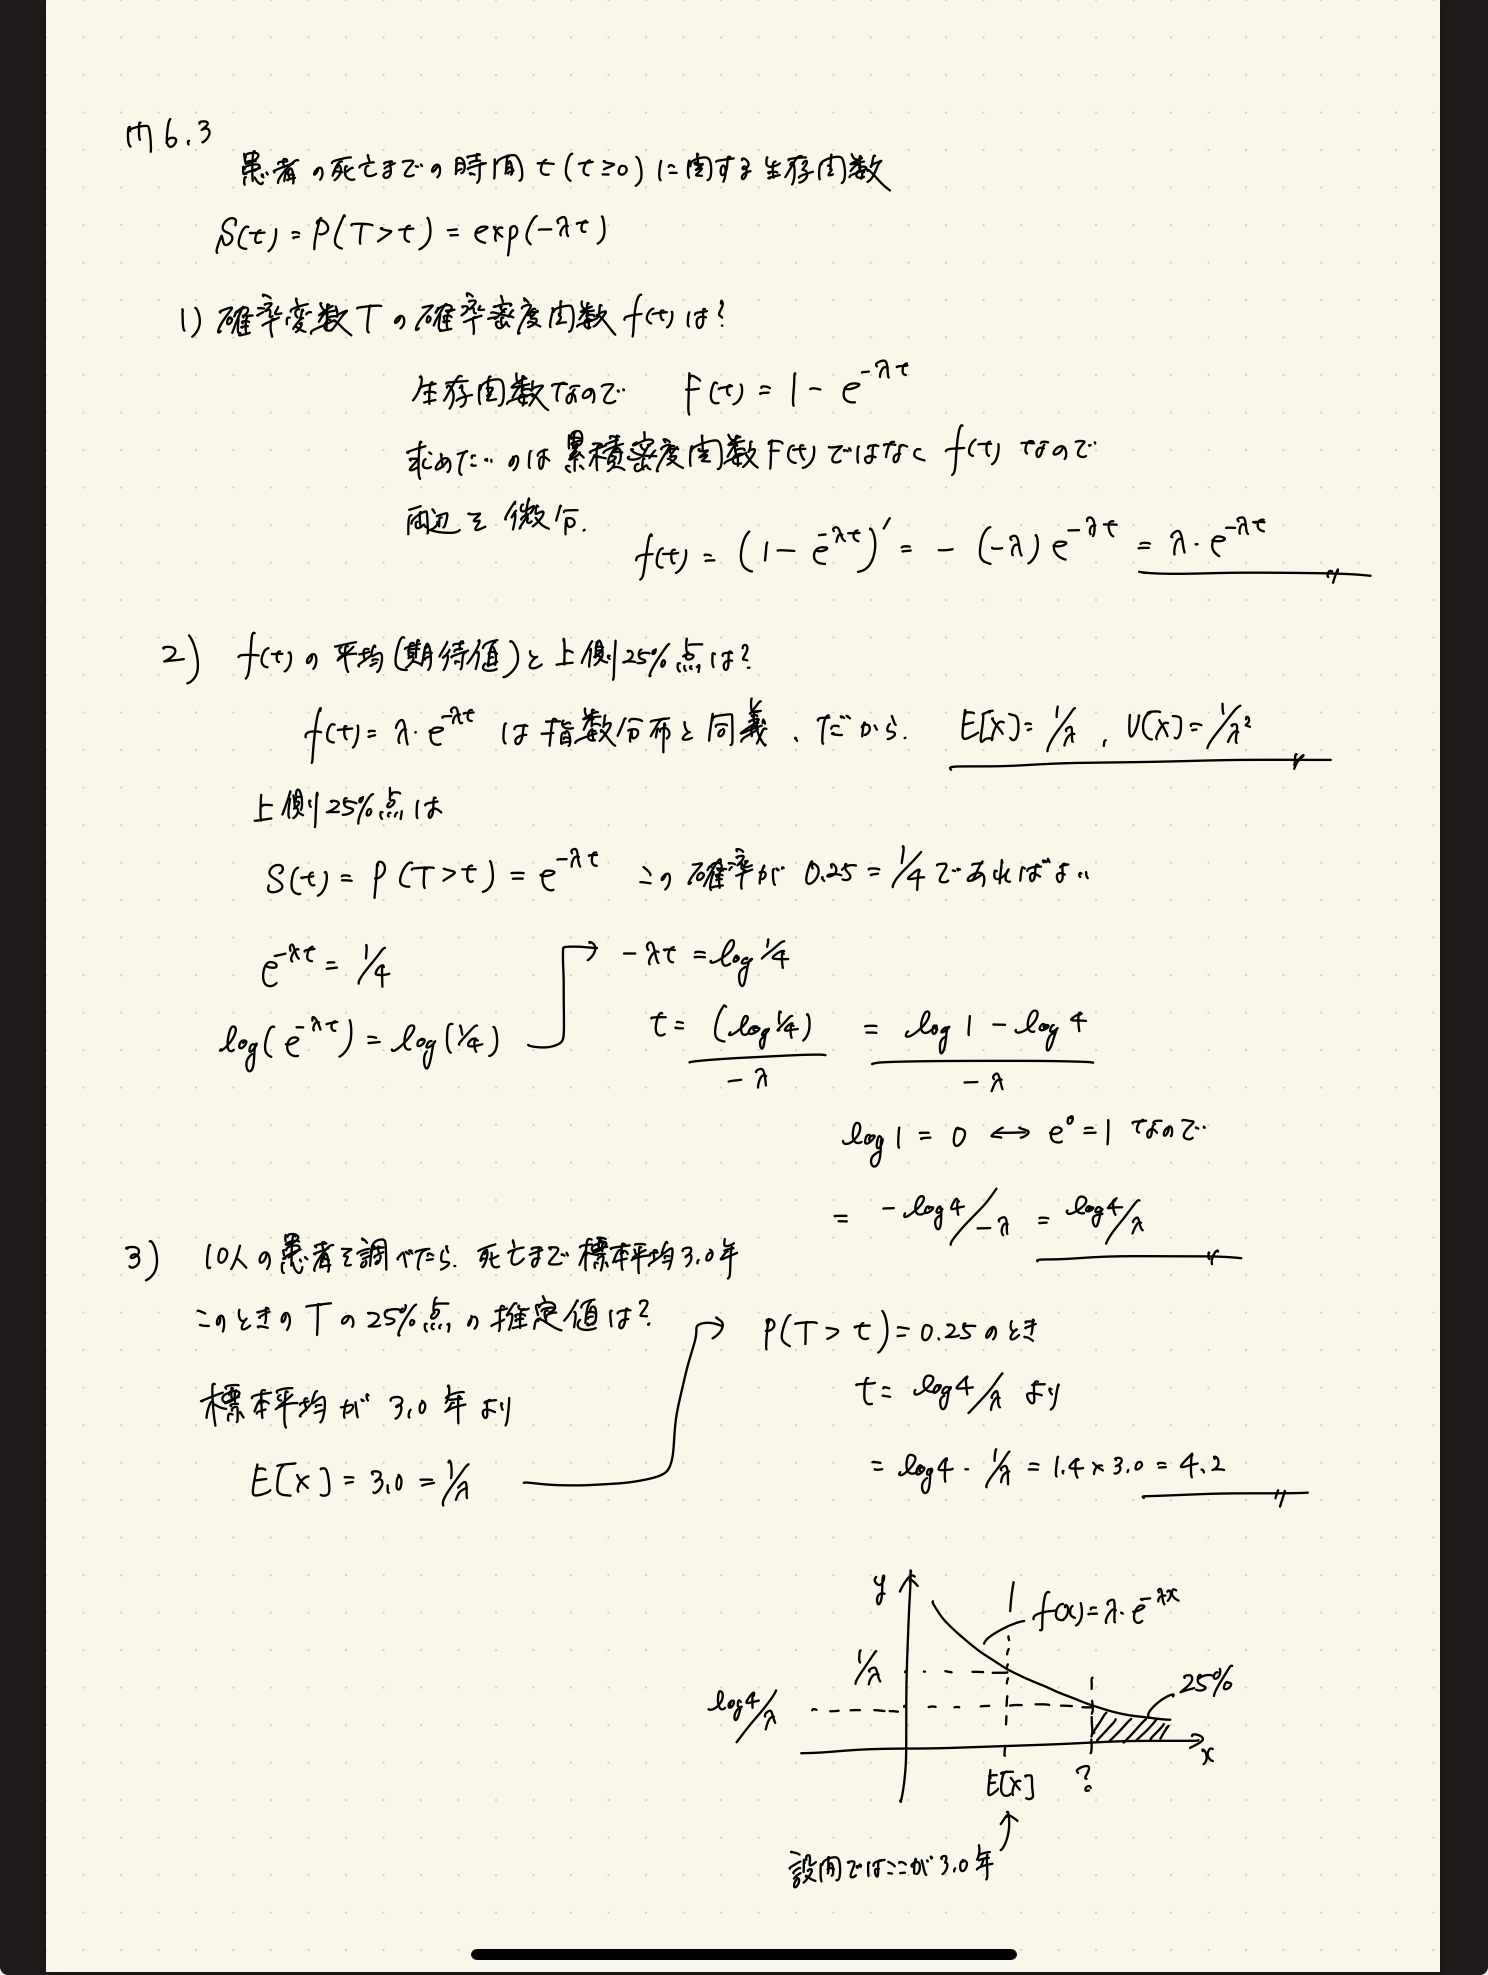 問6.3
患者の死亡までの時間 t (t≥0) に関する生存関数
S(t) = P(T>t) = exp(-λt)
1) 確率変数 T の確率密度関数 f(t) は?
生存関数なので F(t) = 1 - e^{-λt}
求めたいのは累積密度関数 F(t) ではなく f(t) なので
両辺を微分.
f(t) = (1 - e^{-λt})' = -(-λ) e^{-λt} = λ・e^{-λt}
2) f(t) の平均(期待値)と上側25%点は?
f(t) = λ・e^{-λt} は指数分布と同義、だから. E[X] = 1/λ , V[X] = 1/λ²
上側25%点は
S(t) = P(T>t) = e^{-λt} この確率が 0.25 = 1/4 であればよい
e^{-λt} = 1/4
log(e^{-λt}) = log(1/4)
→ -λt = log 1/4
t = (log 1/4) / -λ = log 1 - log 4 / -λ
log 1 = 0 ↔ e⁰ = 1 なので
= -log4/-λ = log4/λ
3) 10人の患者を調べたら. 死亡まで標本平均3.0年
このときの T の 25%点の推定値は?
標本平均が 3.0年より
E[X] = 3.0 = 1/λ
→ P(T > t) = 0.25 のとき
t = log4/λ より
= log4・1/λ = 1.4 × 3.0 = 4.2
y
f(x) = λ・e^{-λx}
1/λ
25%
log4/λ
x
E[X] ?
設問ではここが3.0年